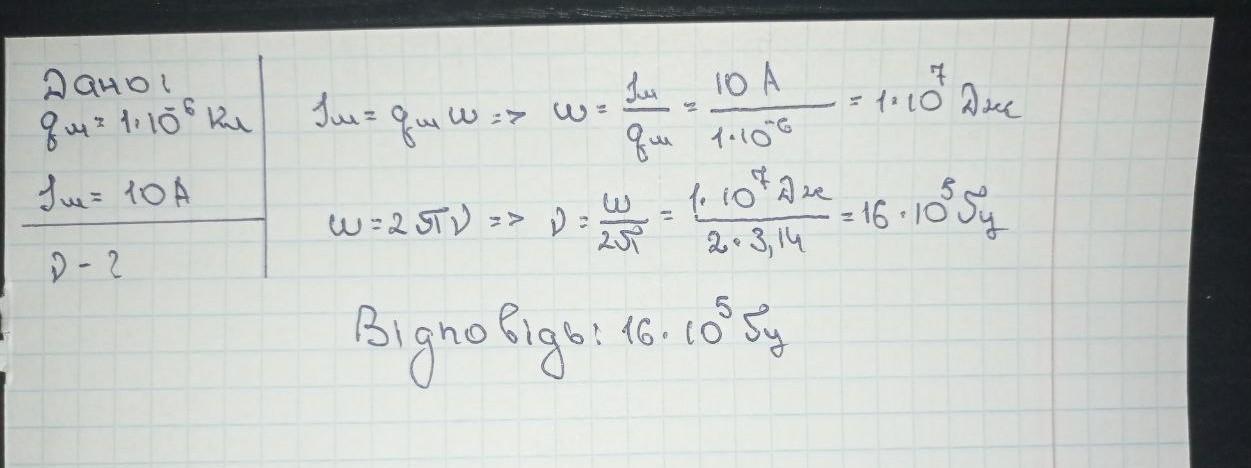 Дано:
qм = 1·10⁻⁶ Кл
Iм = 10 А
ν - ?
Iм = qм ω => ω = Iм/qм = 10 А/1·10⁻⁶ = 1·10⁷ Дж
ω = 2πν => ν = ω/2π = 1·10⁷ Дж/2·3,14 = 16·10⁵ Гц
Відповідь: 16·10⁵ Гц